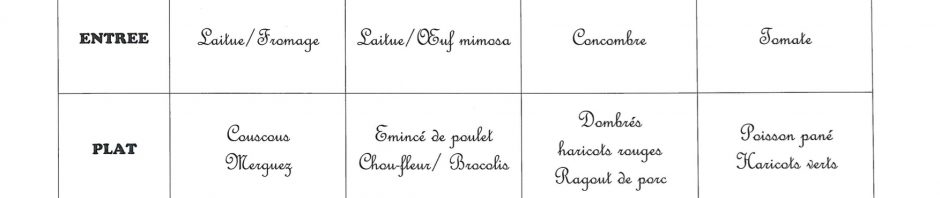 ENTREE
Laitue/Fromage
Laitue/Œuf mimosa
Concombre
Tomate
PLAT
Couscous
Merguez
Emincé de poulet
Chou-fleur/ Brocolis
Dombrés
haricots rouges
Ragout de porc
Poisson pané
Haricots verts